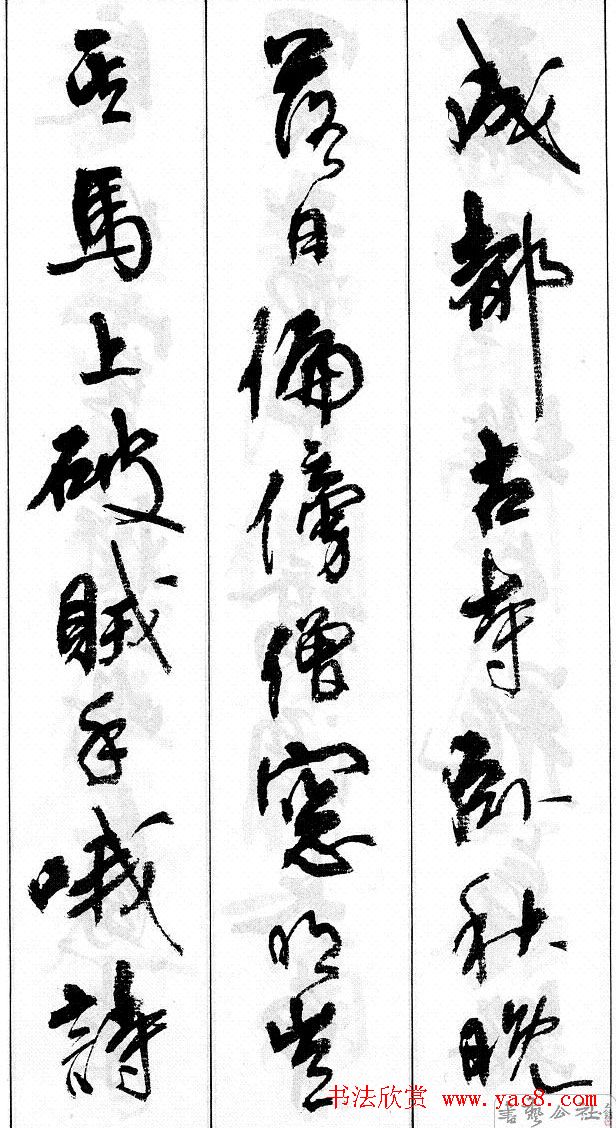 成都古寺臥秋晚
落日偏傍僧窻明豈
其馬上破賊手哦詩
书法欣赏 www.yac8.com
書藝公社